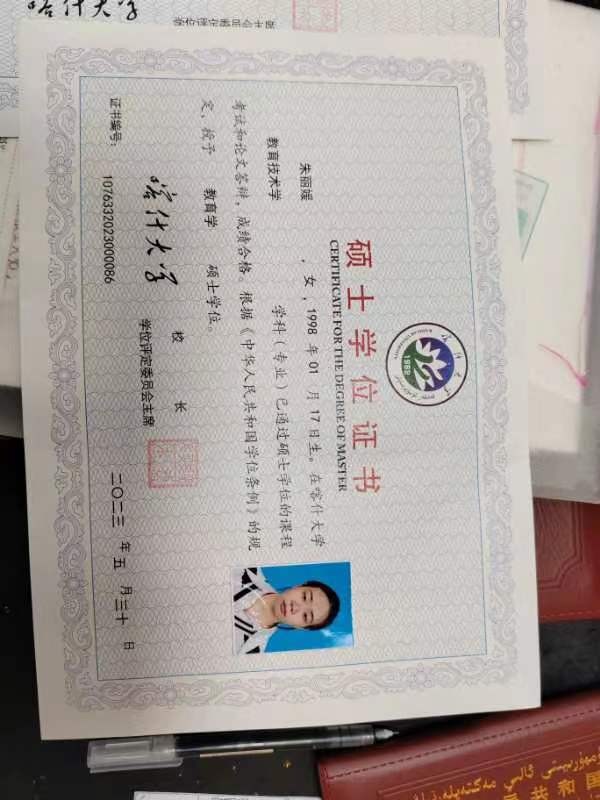 喀什大学
学位评定委员会主席
1962
硕士学位证书
CERTIFICATE FOR THE DEGREE OF MASTER
朱丽媛 ，女，1998 年 01 月 17 日生。在喀什大学
教育技术学 学科（专业）已通过硕士学位的课程
考试和论文答辩，成绩合格。根据《中华人民共和国学位条例》的规
定，授予 教育学 硕士学位。
喀什大学
校 长
学位评定委员会主席
证书编号：1076332023000086
二〇二三 年 五 月 三十 日
共和国